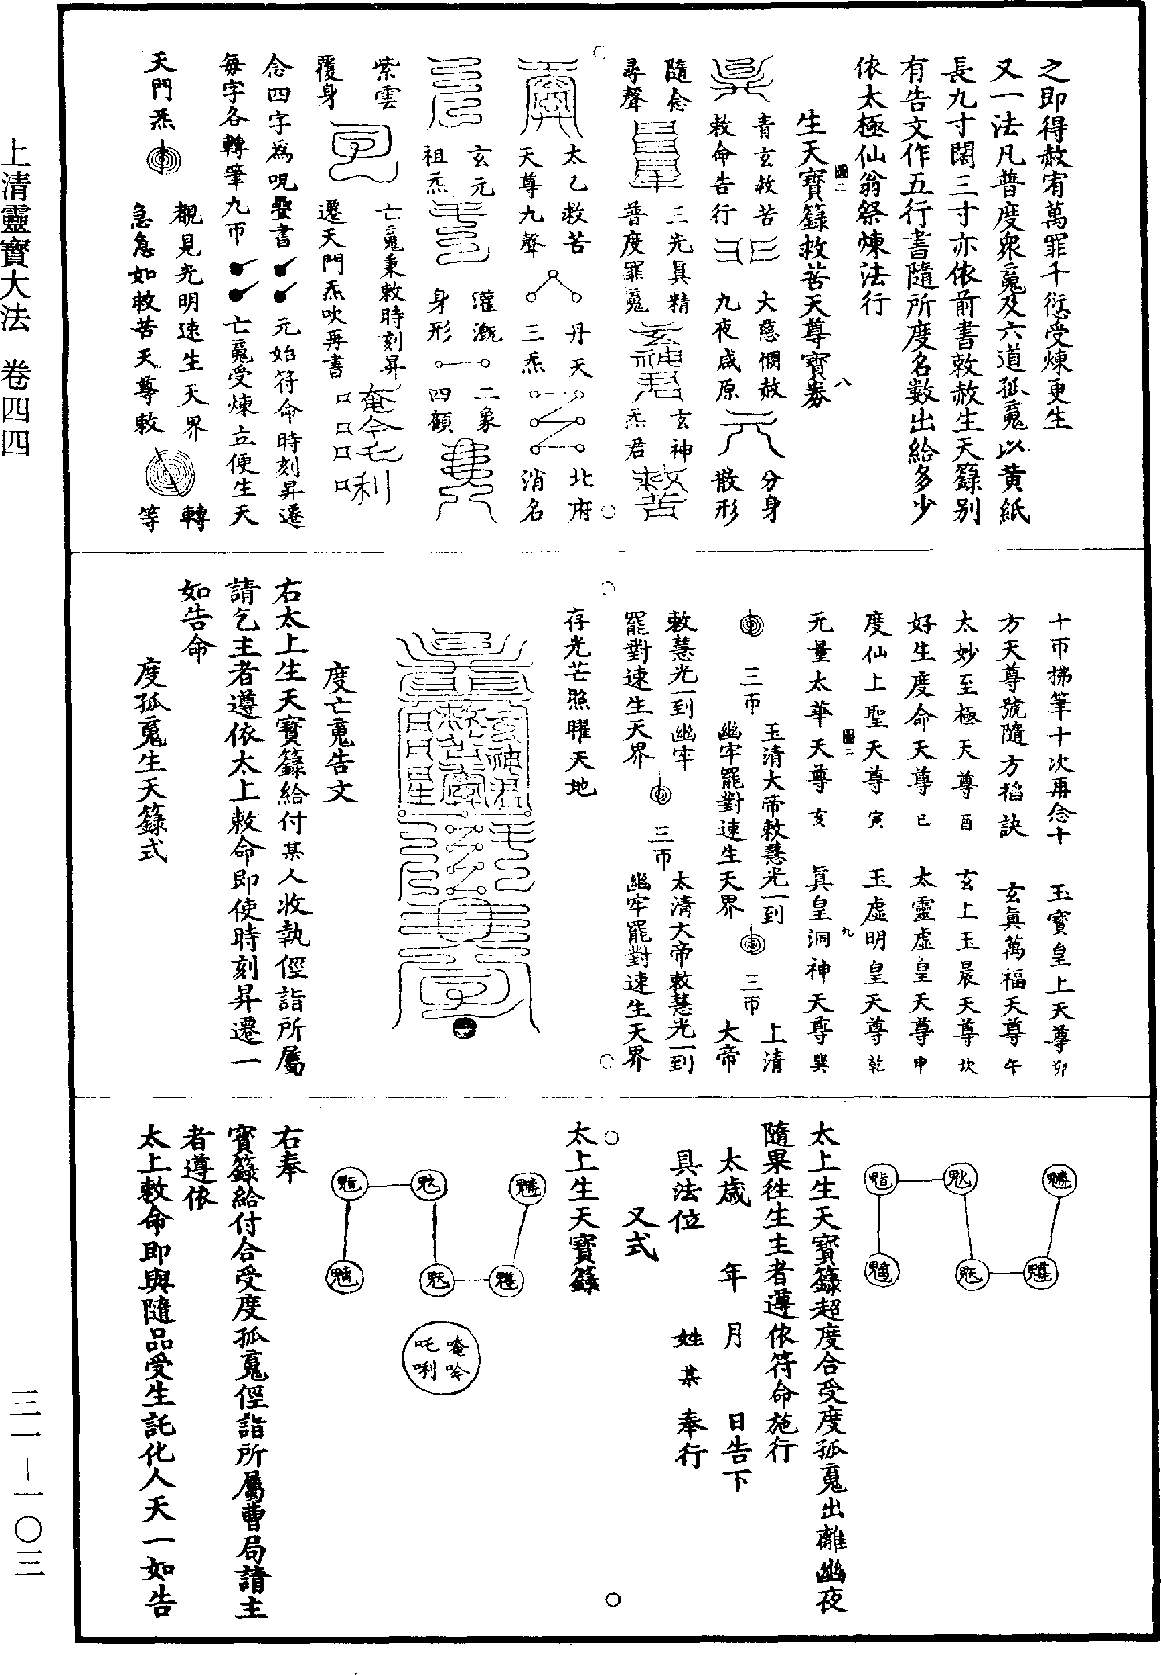 之即得赦宥萬罪千愆受煉更生
又一法凡普度衆䰟及六道孤䰟以黄紙
長九寸闊三寸亦依前書敕赦生天籙别
有告文作五行書隨所度名數出給多少
依太極仙翁祭煉法行
生天寶籙救苦天尊寶券
圖二
八
青玄救苦
敕命告行
大慈憫赦
九夜咸原
分身
散形
隨念
尋聲
三光眞精
普度罪䰟
玄神
炁君
太乙救苦
天尊九聲
丹天
三炁
北府
消名
玄元
祖炁
灌溉
身形
二象
四顧
紫雲
覆身
亡䰟秉敕時刻昇
遷天門炁吹再書
唵令乇唎
念四字為呪疊書
元始符命時刻昇遷
每字各轉筆九帀
亡䰟受煉立便生天
天門炁
覩見光明速生天界
急急如救苦天尊敕
轉
等
十帀拂筆十次再念十
玉寶皇上天尊卯
方天尊號隨方搯訣
玄眞萬福天尊午
太妙至極天尊酉
玄上玉晨天尊坎
好生度命天尊巳
太靈虛皇天尊申
度仙上聖天尊寅
玉虛明皇天尊乾
无量太華天尊亥
眞皇洞神天尊巽
圖二
九
三帀
玉清大帝敕慧光一到
幽牢罷對速生天界
三帀
上清
大帝
敕慧光一到幽牢
罷對速生天界
三帀
太清大帝敕慧光一到
幽牢罷對速生天界
存光芒照曜天地
度亡䰟告文
右太上生天寶籙給付某人收執徑詣所屬
請乞主者遵依太上敕命即使時刻昇遷一
如告命
度孤䰟生天籙式
太上生天寶籙超度合受度孤䰟出離幽夜
隨果往生主者遵依符命施行
太歲 年 月 日告下
具法位 姓某 奉行
又式
太上生天寶籙
唵吟
吒唎
右奉
寶籙給付合受度孤䰟徑詣所屬曹局請主
者遵依
太上敕命即與隨品受生託化人天一如告
上清靈寶大法 卷四四
三一–一〇三